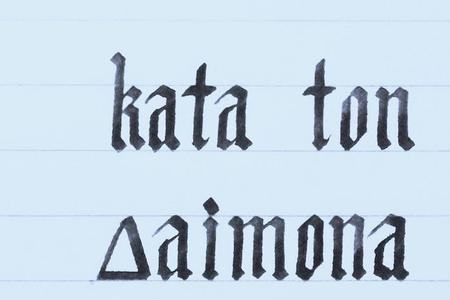 kata ton
Δaimona